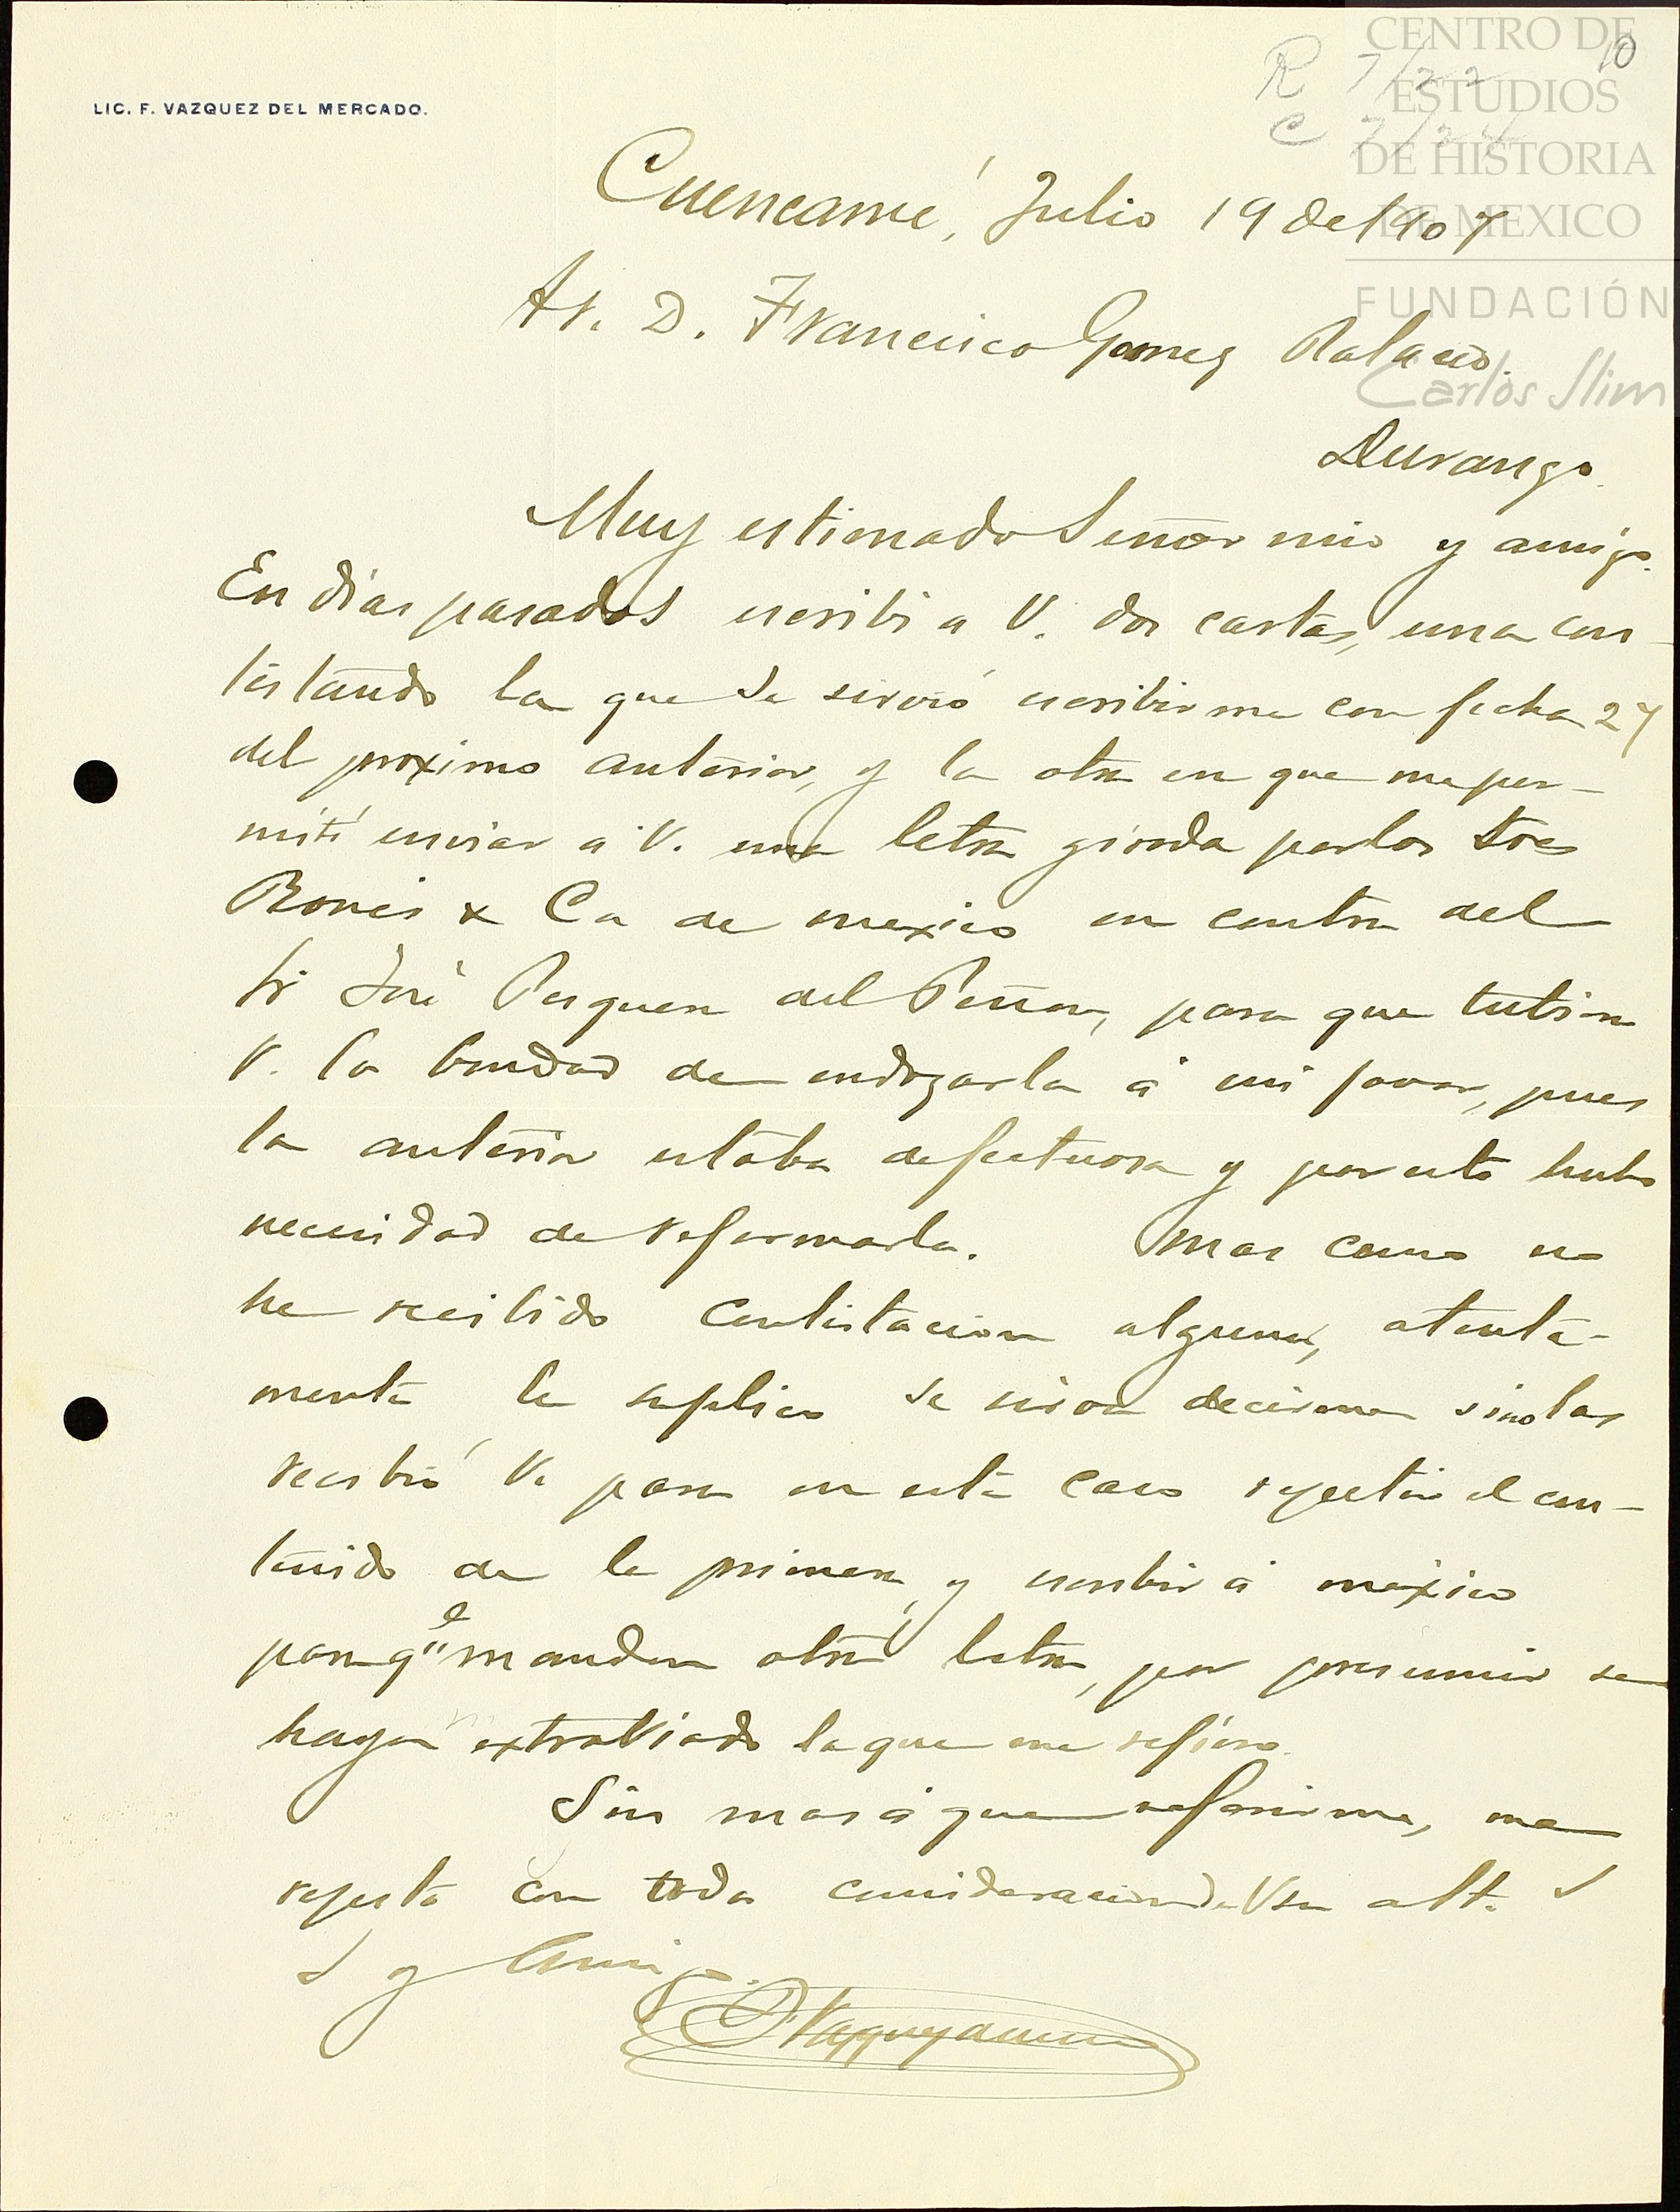 CENTRO DE
ESTUDIOS
DE HISTORIA
DE MEXICO
FUNDACIÓN
Carlos Slim
10
R 7/22
C 7/24
LIC. F. VAZQUEZ DEL MERCADO.
Cuencamé, Julio 19 de 1907
Sr. D. Francisco Gomez Palacio.
Durango.
Muy estimado Señor mio y amigo.
En dias pasados escribi a V. dos cartas, una con-
testando la que se sirvió escribirme con fecha 27
del proximo anterior, y la otra en que me per-
mití enviar a V. una letra girada por los Sres
& Ca de mexico en contra del
Sr José del Peñon, para que tubiera
V. la bondad de endozarla á mi favor, pues
la anterior estaba defectuosa y por esto hubo
necesidad de reformarla. Mas como no
he recibido contestacion alguna, atenta-
mente le suplico se sirva decirme si no las
recibió V. para en este caso repetir el con-
tenido de la primera, y escribir á mexico
para qe manden otra letra, por presumir se
haya extraviado la que me refiero.
Sin mas á que referirme, me
repito con toda consideracion de V su att. S
S y Amigo.